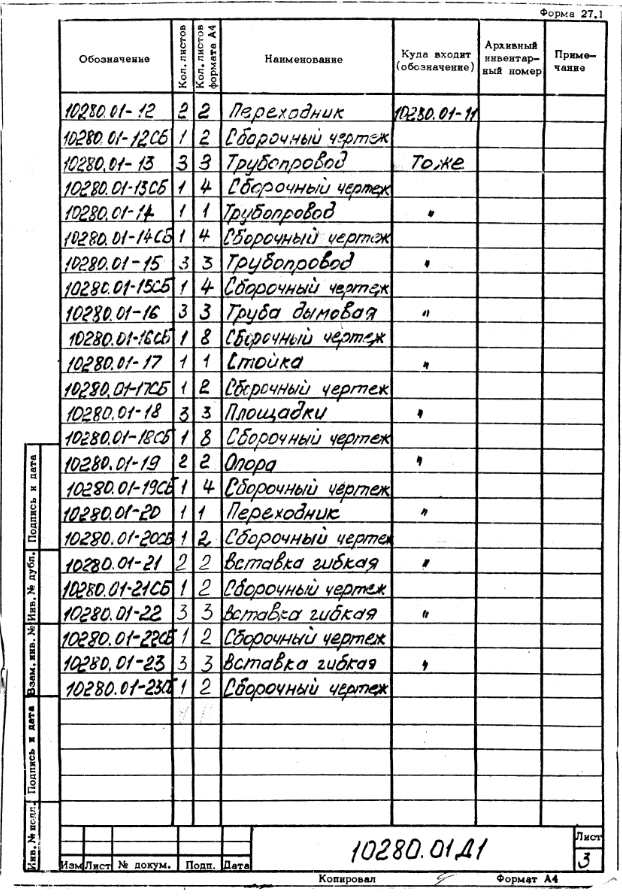 Форма 27.1
Обозначение Кол. листов Кол. листов формата А4 Наименование Куда входит (обозначение) Архивный инвентар- ный номер Приме- чание
10280.01-12 2 2 Переходник 10280.01-11
10280.01-12СБ 1 2 Сборочный чертеж
10280.01-13 3 3 Трубопровод То же
10280.01-13СБ 1 4 Сборочный чертеж
10280.01-14 1 1 Трубопровод "
10280.01-14СБ 1 4 Сборочный чертеж
10280.01-15 3 3 Трубопровод "
10280.01-15СБ 1 4 Сборочный чертеж
10280.01-16 3 3 Труба дымовая "
10280.01-16СБ 1 8 Сборочный чертеж
10280.01-17 1 1 Стойка "
10280.01-17СБ 1 2 Сборочный чертеж
10280.01-18 3 3 Площадки "
10280.01-18СБ 1 8 Сборочный чертеж
10280.01-19 2 2 Опора "
10280.01-19СБ 1 4 Сборочный чертеж
10280.01-20 1 1 Переходник "
10280.01-20СБ 1 2 Сборочный чертеж
10280.01-21 2 2 Вставка гибкая "
10280.01-21СБ 1 2 Сборочный чертеж
10280.01-22 3 3 Вставка гибкая "
10280.01-22СБ 1 2 Сборочный чертеж
10280.01-23 3 3 Вставка гибкая "
10280.01-23СБ 1 2 Сборочный чертеж
Подпись и дата
Инв. № дубл.
Взам. инв. №
Подпись и дата
Инв. № подл.
Изм Лист № докум. Подп. Дата
10280.01Д1
Лист
3
Копировал Формат А4